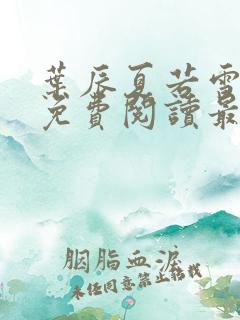 葉辰夏若雪
免費閱讀最
胭脂血淚
未经同意禁止转载